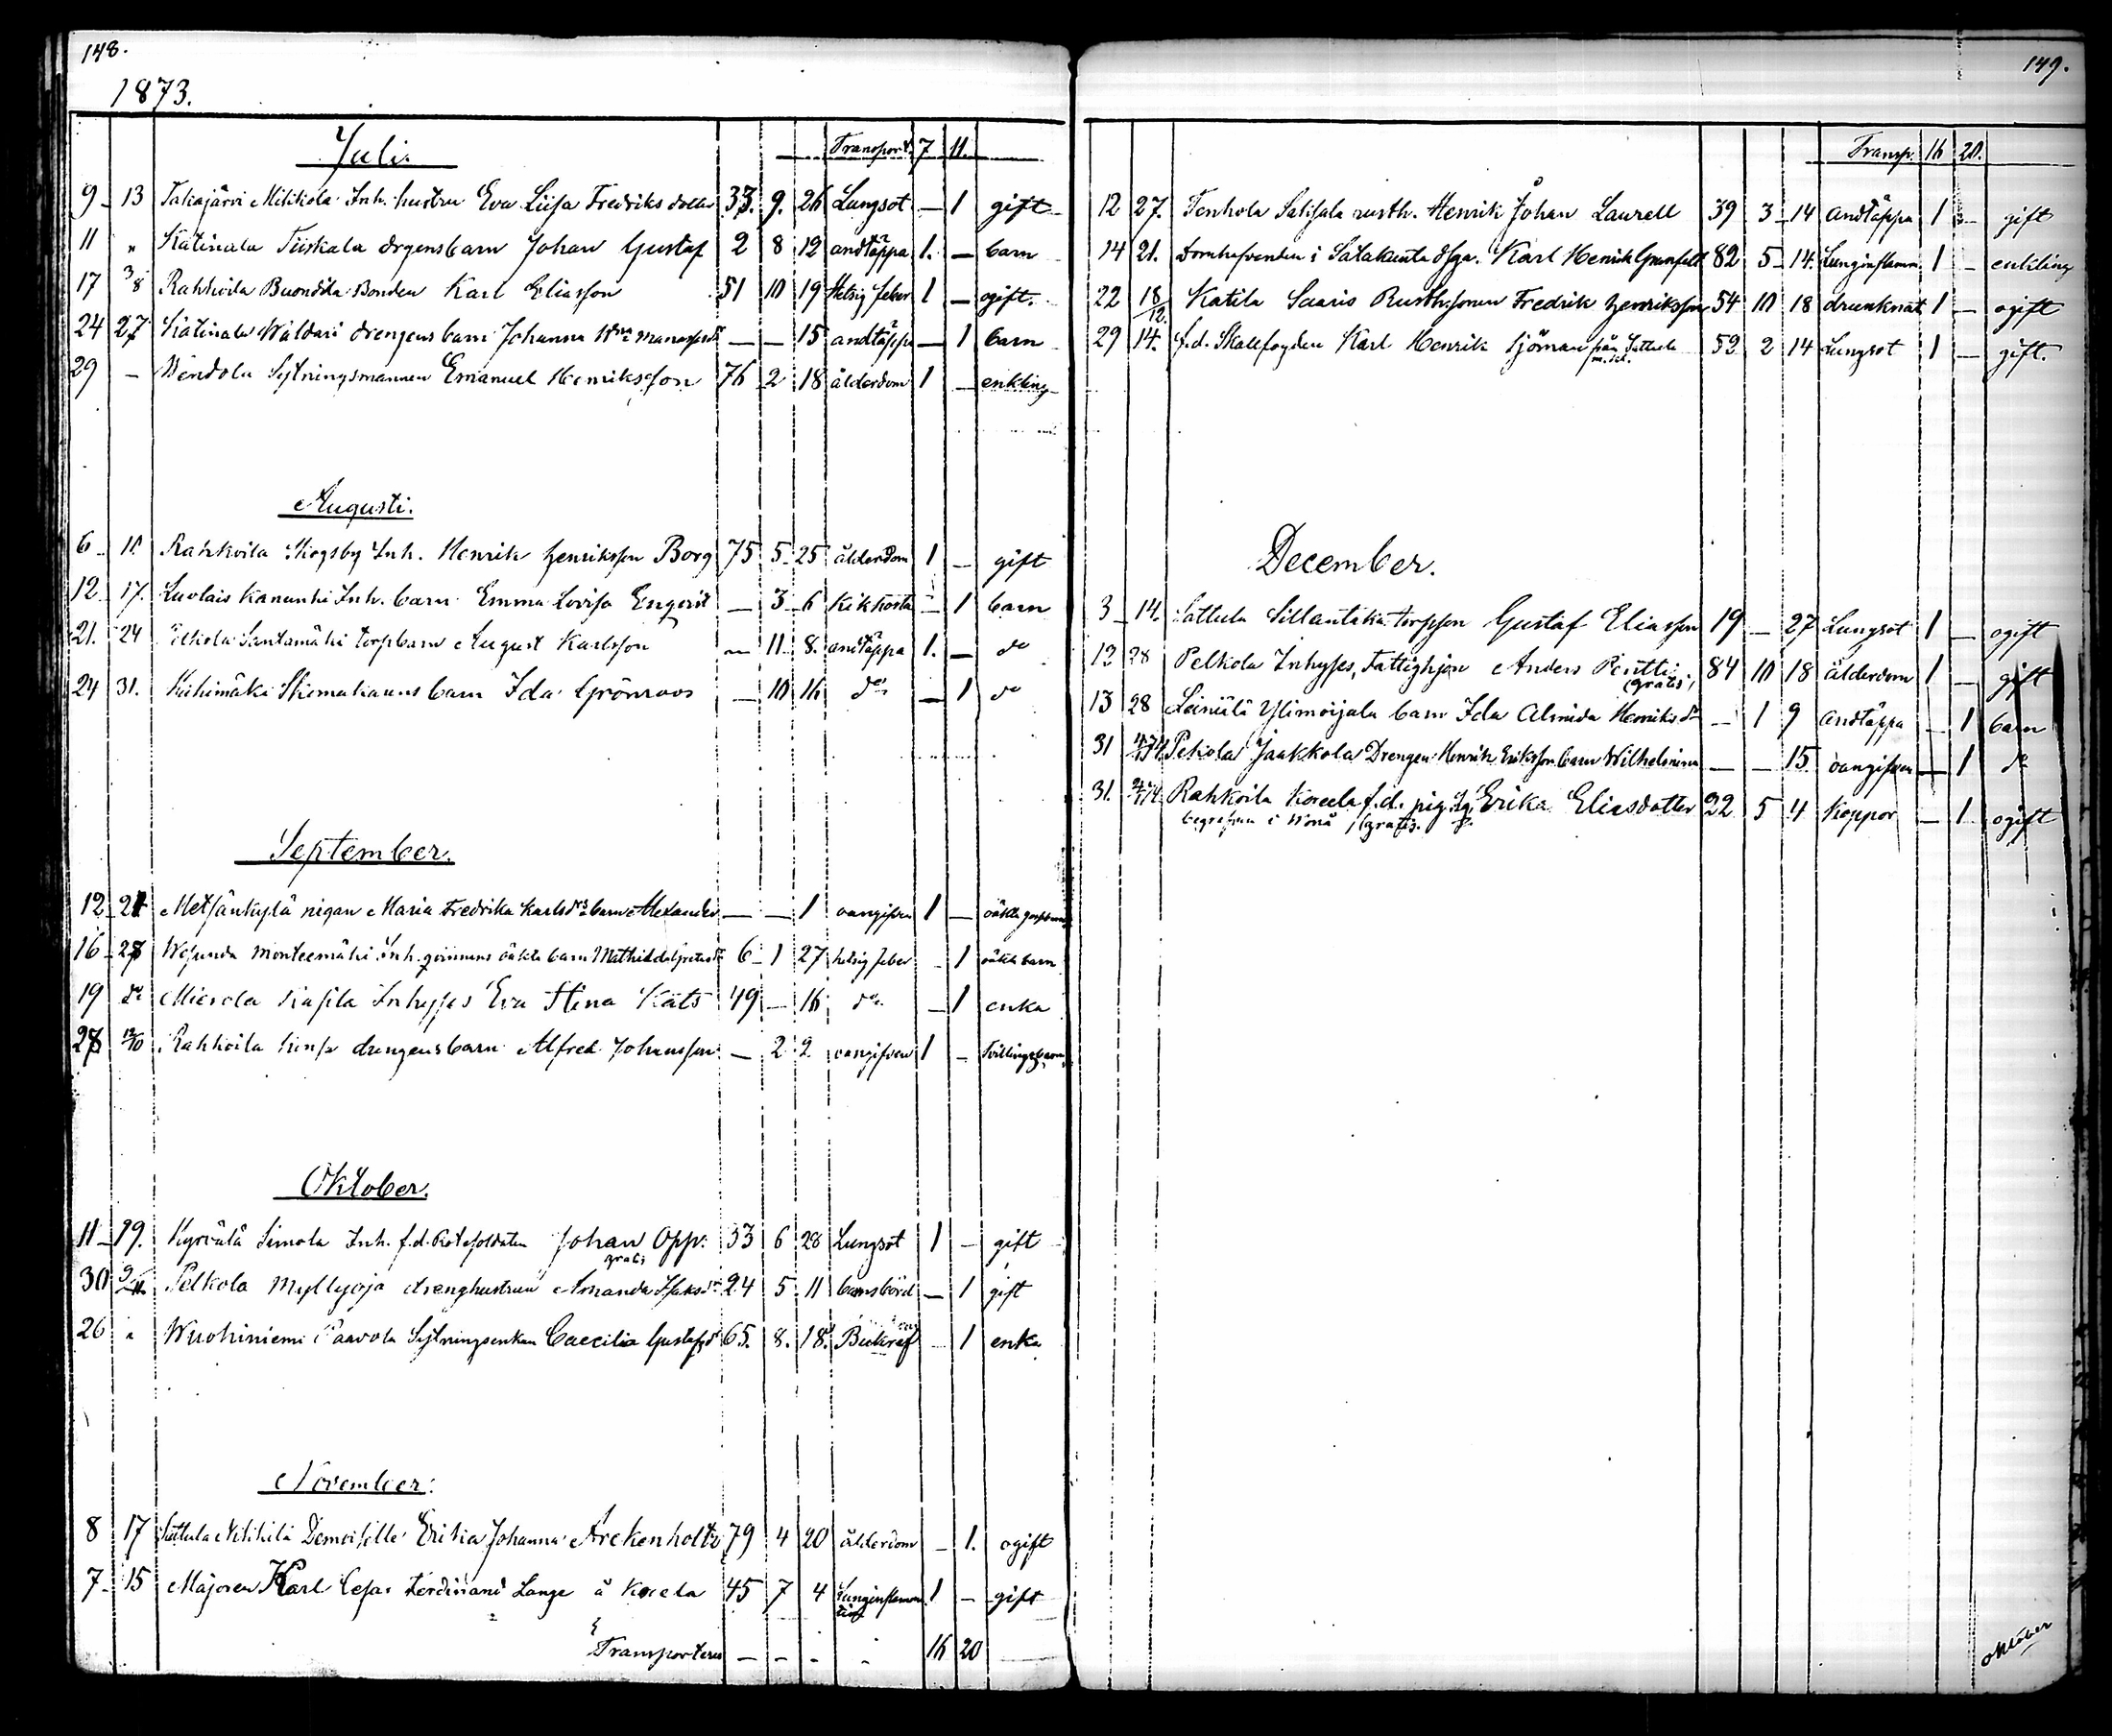 148.
1873.
Juli.
Transport. 7 11.
9 13 Takajärvi Mikkola Inh. hustru Eva Liisa Fredriks dotter 33. 9. 26 Lungsot — 1 gift
11 " Katinala Tiiskala drgensbarn Johan Gustaf 2 8 12 andtäppa 1. — barn
17 3/8 Rahkoila Buondila Bonden Karl Eliasson 51 10 19 Hetsig feber 1 — ogift.
24 27 Katinala Waldari drengens barn Johanna — — 15 andtäppa — 1 barn
29 — Wendola Sytningsmannen Emanuel Henriksson 76 2 18 ålderdom 1 — enkling
Augusti.
6 10 Rahkoila Skogsby Inh. Henrik Henriksson Borg 75 5 25 ålderdom 1 — gift
12 17. Luolais Kanunki Inh. barn Emma Lovisa Engerit — 3 6 Kikhosta — 1 barn
21. 24 Santamäki torpbarn August Karlsson — 11 8. andtäppa 1. — do
24 31. Riihimäki barn Ida Grönroos — 10 16 do — 1 do
September.
12 21 Metsänkylä pigan Maria Fredrika Karlsdrs barn Alexander — — 1 oangifven 1 — oäkta
16 28 Wesunda Monteemäki Inh. qvinnans oäkta barn Mathilda Gretasdr 6 1 27 hetsig feber — 1 oäkta barn
19 do Mierola Kasila Inhyses Eva Stina Käts 49 — 16 do — 1 enka
28 12/10 Rahkoila drengens barn Alfred Johansson — 2 2 oangifven 1 — Tvillingebarn
Oktober.
11 19. Kyrvälä Simola Inh. f.d. Rotesoldaten Johan Opp. 33 6 28 Lungsot 1 — gift
gratis
30 9/11 Pelkola Myllyoja drenghustrun Amanda Isaksdr 24 5 11 barnsbörd — 1 gift
26 " Wuohiniemi Paavola Sytningsenkan Caecilia Gustafsdr 65. 8. 18. — 1 enka
November.
8 17 Sattula Mikkilä Demoiselle Erika Johanna Arckenholtz 79 4 20 ålderdom — 1. ogift
7 15 Majoren Karl Cesar Ferdinand Lange å Koeela 45 7 4 Lunginflammation 1 — gift
Transporteras — — - - 16 20
149.
Transp. 16 20.
12 27. Tenhola Salisala rusth. Henrik Johan Laurell 39 3 14 Andtäppa 1 — gift
14 21. Domhafvanden i Satakunta Karl Henrik Granfelt 82 5 14. Lunginflamm. 1 — enkling
22 18/12. Katila Saaris Rusth.sonen Fredrik Henriksson 54 10 18 drunknat 1 — ogift
29 14. f.d. Skallfogden Karl Henrik Sjöman från Sattula 52 2 14 Lungsot 1 — gift.
December.
3 14. Sattula Sillantaka torpson Gustaf Eliasson 19 — 27 Lungsot 1 — ogift
12 28 Pelkola Inhyses, Fattighjon Anders Penttis 84 10 18 ålderdom 1 — gift
(gratis.)
13 28 Leiniälä Ylimoijala barn Ida Almida Henriksdr — 1 9 Andtäppa — 1 barn
31 Pekola Jaakkola Drengen Henrik Erikssons barn Wilhelmina — — 15 oangifven — 1 do
31. Rahkoila Koeela f.d. pig. Erika Eliasdotter 22 5 4 Koppor — 1 ogift
begrafven i Wånå (gratis.
oktober